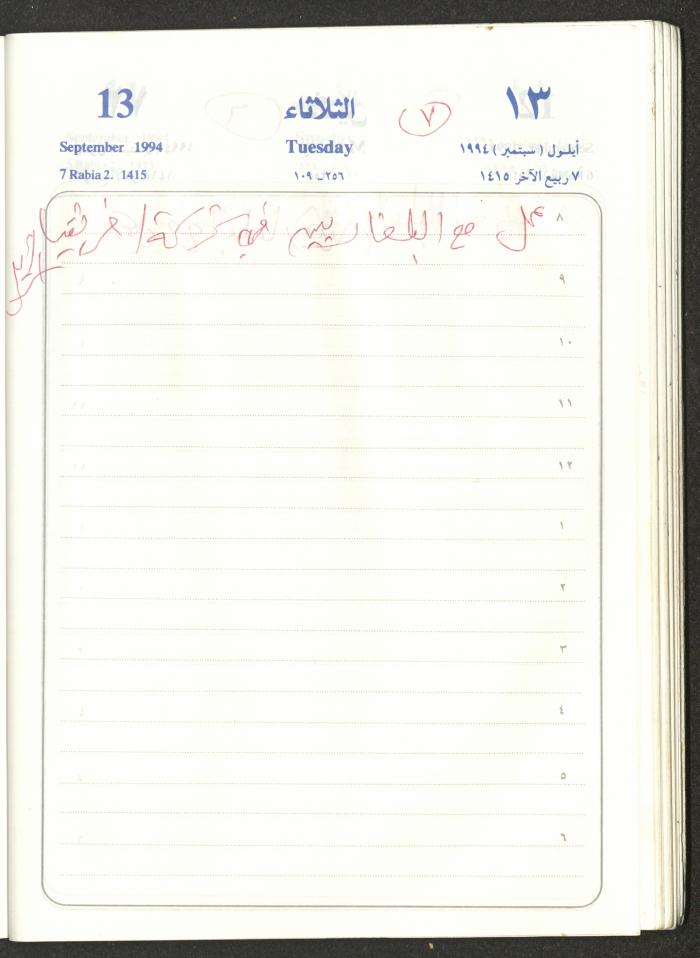 13 الثلاثاء ٧ ١٣
September 1994 Tuesday أيلول ( سبتمبر ) ١٩٩٤
7 Rabia 2. 1415 ٢٥٦ــ ١٠٩ ٧ ربيع الآخر ١٤١٥
٨ عمل مع البلغاريين في شركة افريقيا
٩
١٠
١١
١٢
١
٢
٣
٤
٥
٦